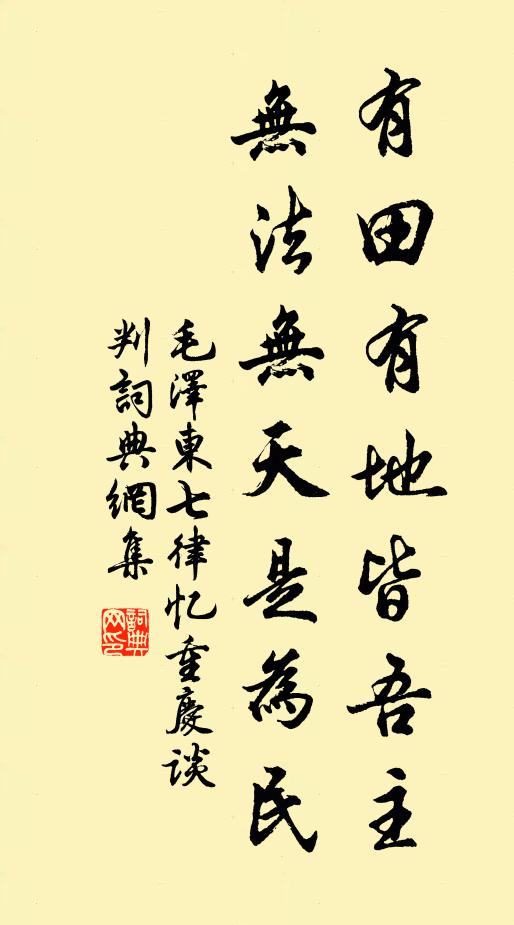 有田有地皆吾主
無法無天是為民
毛澤東七律忆重慶谈
判詞典網集
詞典
网印